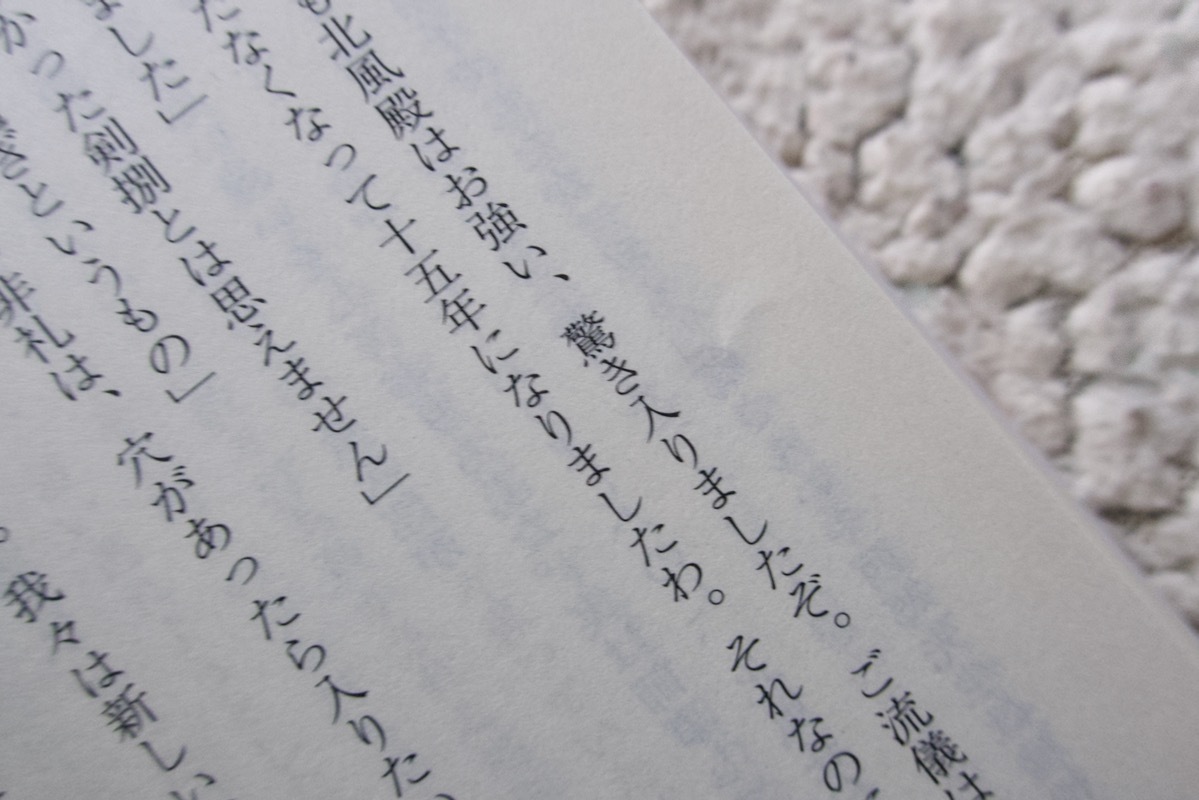 北風殿はお強い、驚き入りましたぞ。ご流儀は
たなくなって十五年になりましたわ。それなの
ました」
かった剣捌とは思えません」
ぎというもの」
非礼は、穴があったら入りた
。我々は新しい